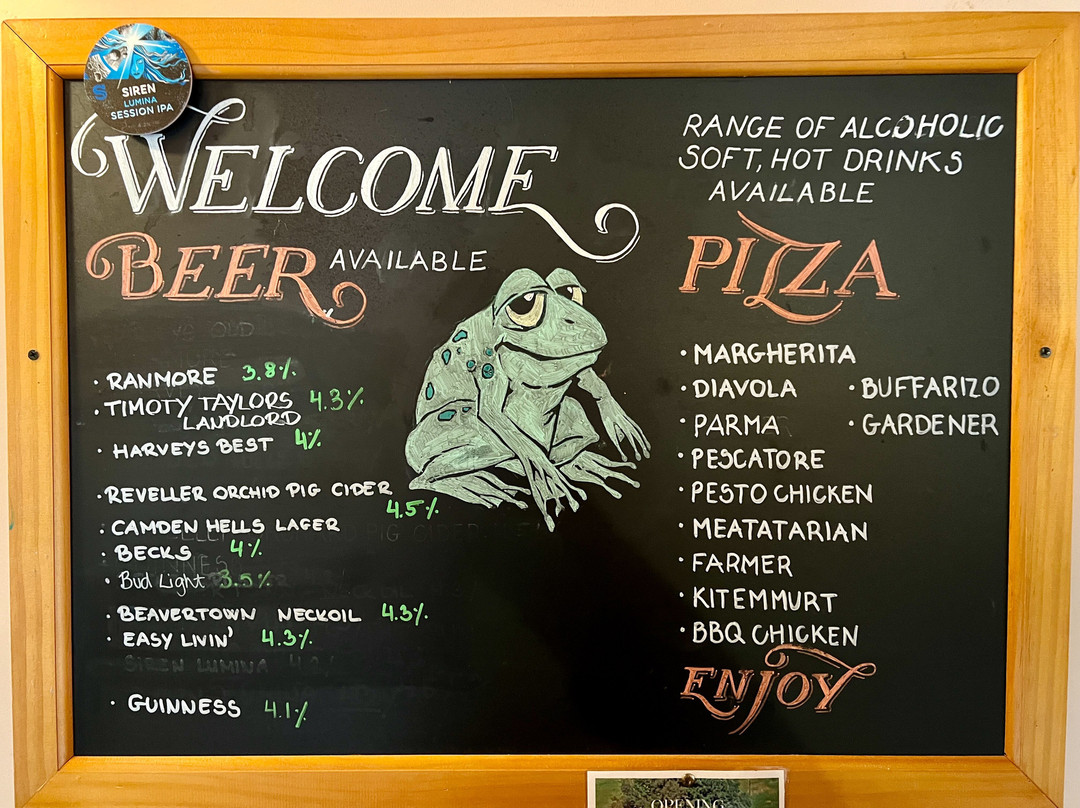 SIREN
LUMINA
SESSION IPA
WELCOME
BEER AVAILABLE
· RANMORE 3.8%
· TIMOTY TAYLORS 4.3%
LANDLORD
· HARVEYS BEST 4%
· REVELLER ORCHID PIG CIDER
4.5%
· CAMDEN HELLS LAGER
· BECKS 4%
· Bud Light 3.5%
· BEAVERTOWN NECKOIL 4.3%
· EASY LIVIN' 4.3%
SIREN LUMINA
· GUINNESS 4.1%
RANGE OF ALCOHOLIC
SOFT, HOT DRINKS
AVAILABLE
PIZZA
· MARGHERITA
· DIAVOLA · BUFFARIZO
· PARMA · GARDENER
· PESCATORE
· PESTO CHICKEN
· MEATATARIAN
· FARMER
· KITEMMURT
· BBQ CHICKEN
ENJOY
OPENING